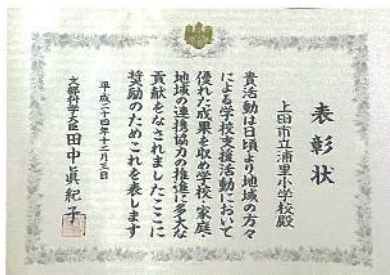 表彰状
上田市立浦里小学校殿
貴活動は日頃より地域の方々
による学校支援活動において
優れた成果を収め学校・家庭・
地域の連携協力の推進に多大な
貢献をなされましたここに
奨励のためこれを表します
平成二十四年十二月三日
文部科学大臣 田中眞紀子